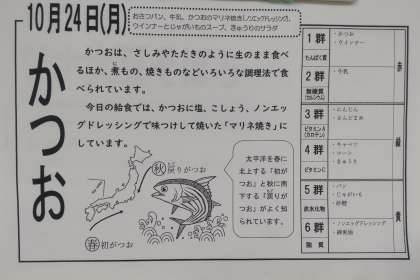 10月24日(月)
おさつパン、牛乳、かつおのマリネ焼き(ノンエッグドレッシング)、
ウインナーとじゃがいものスープ、きゅうりのサラダ
かつお
かつおは、さしみやたたきのように生のまま食べ
るほか、煮もの、焼きものなどいろいろな調理法で食
べられています。
今日の給食では、かつおに塩、こしょう、ノンエッ
グドレッシングで味つけして焼いた「マリネ焼き」に
しています。
秋 戻りがつお
春 初がつお
太平洋を春に
北上する「初が
つお」と秋に南
下する「戻りが
つお」がよく知
られています。
1群
たんぱく質
・かつお
・ウインナー
赤
2群
無機質
(カルシウム)
・牛乳
3群
ビタミンA
(カロテン)
・にんじん
・さんどまめ
緑
4群
ビタミンC
・キャベツ
・コーン
・きゅうり
5群
炭水化物
・パン
・じゃがいも
・砂糖
黄
6群
脂質
・ノンエッグドレッシング
・調理油